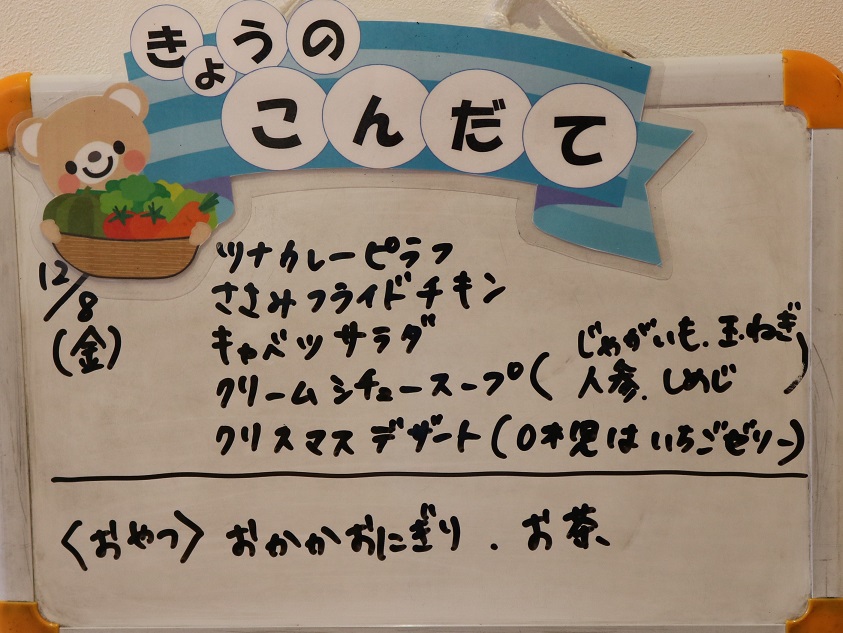 きょうの
こんだて
12/8
(金)
ツナカレーピラフ
ささみフライドチキン
キャベツサラダ
クリームシチュースープ(じゃがいも.玉ねぎ
人参.しめじ)
クリスマスデザート(0才児はいちごゼリー)
〈おやつ〉おかかおにぎり.お茶